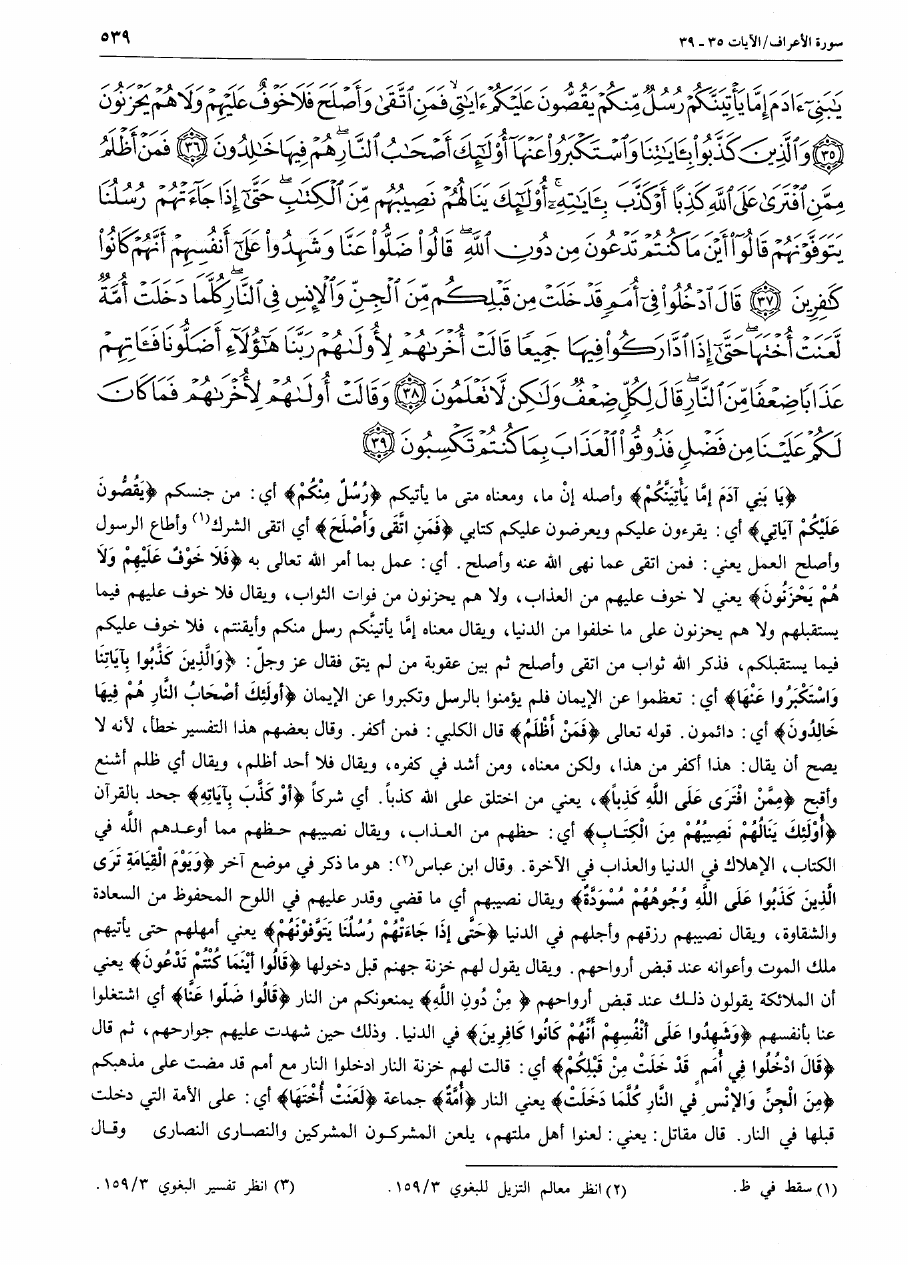 سورة الأعراف/الآيات ٣٥ ـ ٣٩
٥٣٩
يَٰبَنِيٓ ءَادَمَ إِمَّا يَأۡتِيَنَّكُمۡ رُسُلٞ مِّنكُمۡ يَقُصُّونَ عَلَيۡكُمۡ ءَايَٰتِي فَمَنِ ٱتَّقَىٰ وَأَصۡلَحَ فَلَا خَوۡفٌ عَلَيۡهِمۡ وَلَا هُمۡ يَحۡزَنُونَ
٣٥ وَٱلَّذِينَ كَذَّبُواْ بِـَٔايَٰتِنَا وَٱسۡتَكۡبَرُواْ عَنۡهَآ أُوْلَٰٓئِكَ أَصۡحَٰبُ ٱلنَّارِۖ هُمۡ فِيهَا خَٰلِدُونَ ٣٦ فَمَنۡ أَظۡلَمُ
مِمَّنِ ٱفۡتَرَىٰ عَلَى ٱللَّهِ كَذِبًا أَوۡ كَذَّبَ بِـَٔايَٰتِهِۦٓۚ أُوْلَٰٓئِكَ يَنَالُهُمۡ نَصِيبُهُم مِّنَ ٱلۡكِتَٰبِۖ حَتَّىٰٓ إِذَا جَآءَتۡهُمۡ رُسُلُنَا
يَتَوَفَّوۡنَهُمۡ قَالُوٓاْ أَيۡنَ مَا كُنتُمۡ تَدۡعُونَ مِن دُونِ ٱللَّهِۖ قَالُواْ ضَلُّواْ عَنَّا وَشَهِدُواْ عَلَىٰٓ أَنفُسِهِمۡ أَنَّهُمۡ كَانُواْ
كَٰفِرِينَ ٣٧ قَالَ ٱدۡخُلُواْ فِيٓ أُمَمٖ قَدۡ خَلَتۡ مِن قَبۡلِكُم مِّنَ ٱلۡجِنِّ وَٱلۡإِنسِ فِي ٱلنَّارِۖ كُلَّمَا دَخَلَتۡ أُمَّةٞ
لَّعَنَتۡ أُخۡتَهَاۖ حَتَّىٰٓ إِذَا ٱدَّارَكُواْ فِيهَا جَمِيعٗا قَالَتۡ أُخۡرَىٰهُمۡ لِأُولَىٰهُمۡ رَبَّنَا هَٰٓؤُلَآءِ أَضَلُّونَا فَـَٔاتِهِمۡ
عَذَابٗا ضِعۡفٗا مِّنَ ٱلنَّارِۖ قَالَ لِكُلّٖ ضِعۡفٞ وَلَٰكِن لَّا تَعۡلَمُونَ ٣٨ وَقَالَتۡ أُولَىٰهُمۡ لِأُخۡرَىٰهُمۡ فَمَا كَانَ
لَكُمۡ عَلَيۡنَا مِن فَضۡلٖ فَذُوقُواْ ٱلۡعَذَابَ بِمَا كُنتُمۡ تَكۡسِبُونَ ٣٩
﴿يَا بَنِي آدَمَ إِمَّا يَأْتِيَنَّكُمْ﴾ وأصله إنْ ما، ومعناه متى ما يأتيكم ﴿رُسُلٌ مِنْكُمْ﴾ أي: من جنسكم ﴿يَقُصُّونَ
عَلَيْكُمْ آيَاتِي﴾ أي: يقرءون عليكم ويعرضون عليكم كتابي ﴿فَمَنِ اتَّقَى وَأَصْلَحَ﴾ أي اتقى الشرك(١) وأطاع الرسول
وأصلح العمل يعني: فمن اتقى عما نهى الله عنه وأصلح. أي: عمل بما أمر الله تعالى به ﴿فَلَا خَوْفٌ عَلَيْهِمْ وَلَا
هُمْ يَحْزَنُونَ﴾ يعني لا خوف عليهم من العذاب، ولا هم يحزنون من فوات الثواب، ويقال فلا خوف عليهم فيما
يستقبلهم ولا هم يحزنون على ما خلفوا من الدنيا، ويقال معناه إمَّا يأتينَّكم رسل منكم وأيقنتم، فلا خوف عليكم
فيما يستقبلكم، فذكر الله ثواب من اتقى وأصلح ثم بين عقوبة من لم يتق فقال عز وجلّ: ﴿وَالَّذِينَ كَذَّبُوا بِآيَاتِنَا
وَاسْتَكْبَرُوا عَنْهَا﴾ أي: تعظموا عن الإيمان فلم يؤمنوا بالرسل وتكبروا عن الإيمان ﴿أُولَئِكَ أَصْحَابُ النَّارِ هُمْ فِيهَا
خَالِدُونَ﴾ أي: دائمون. قوله تعالى ﴿فَمَنْ أَظْلَمُ﴾ قال الكلبي: فمن أكفر. وقال بعضهم هذا التفسير خطأ، لأنه لا
يصح أن يقال: هذا أكفر من هذا، ولكن معناه، ومن أشد في كفره، ويقال فلا أحد أظلم، ويقال أي ظلم أشنع
وأقبح ﴿مِمَّنْ افْتَرَى عَلَى اللَّهِ كَذِباً﴾، يعني من اختلق على الله كذباً. أي شركاً ﴿أَوْ كَذَّبَ بِآيَاتِهِ﴾ جحد بالقرآن
﴿أُوْلَئِكَ يَنَالُهُمْ نَصِيبُهُمْ مِنَ الْكِتَابِ﴾ أي: حظهم من العذاب، ويقال نصيبهم حظهم مما أوعدهم اللَّه في
الكتاب، الإهلاك في الدنيا والعذاب في الآخرة. وقال ابن عباس(٢): هو ما ذكر في موضع آخر ﴿وَيَوْمَ الْقِيَامَةِ تَرَى
الَّذِينَ كَذَبُوا عَلَى اللَّهِ وُجُوهُهُمْ مُسْوَدَّةٌ﴾ ويقال نصيبهم أي ما قضي وقدر عليهم في اللوح المحفوظ من السعادة
والشقاوة، ويقال نصيبهم رزقهم وأجلهم في الدنيا ﴿حَتَّى إِذَا جَاءَتْهُمْ رُسُلُنَا يَتَوَفَّوْنَهُمْ﴾ يعني أمهلهم حتى يأتيهم
ملك الموت وأعوانه عند قبض أرواحهم. ويقال يقول لهم خزنة جهنم قبل دخولها ﴿قَالُوا أَيْنَمَا كُنْتُمْ تَدْعُونَ﴾ يعني
أن الملائكة يقولون ذلك عند قبض أرواحهم ﴿ مِنْ دُونِ اللَّهِ﴾ يمنعونكم من النار ﴿قَالُوا ضَلُّوا عَنَّا﴾ أي اشتغلوا
عنا بأنفسهم ﴿وَشَهِدُوا عَلَى أَنْفُسِهِمْ أَنَّهُمْ كَانُوا كَافِرِينَ﴾ في الدنيا. وذلك حين شهدت عليهم جوارحهم، ثم قال
﴿قَالَ ادْخُلُوا فِي أُمَمٍ قَدْ خَلَتْ مِنْ قَبْلِكُمْ﴾ أي: قالت لهم خزنة النار ادخلوا النار مع أمم قد مضت على مذهبكم
﴿مِنَ الْجِنِّ وَالإِنْسِ فِي النَّارِ كُلَّمَا دَخَلَتْ﴾ يعني النار ﴿أُمَّةٌ﴾ جماعة ﴿لَعَنَتْ أُخْتَهَا﴾ أي: على الأمة التي دخلت
قبلها في النار. قال مقاتل: يعني: لعنوا أهل ملتهم، يلعن المشركون المشركين والنصارى النصارى وقال
(١) سقط في ظ.
(٢) انظر معالم التزيل للبغوي ١٥٩/٣.
(٣) انظر تفسير البغوي ١٥٩/٣.